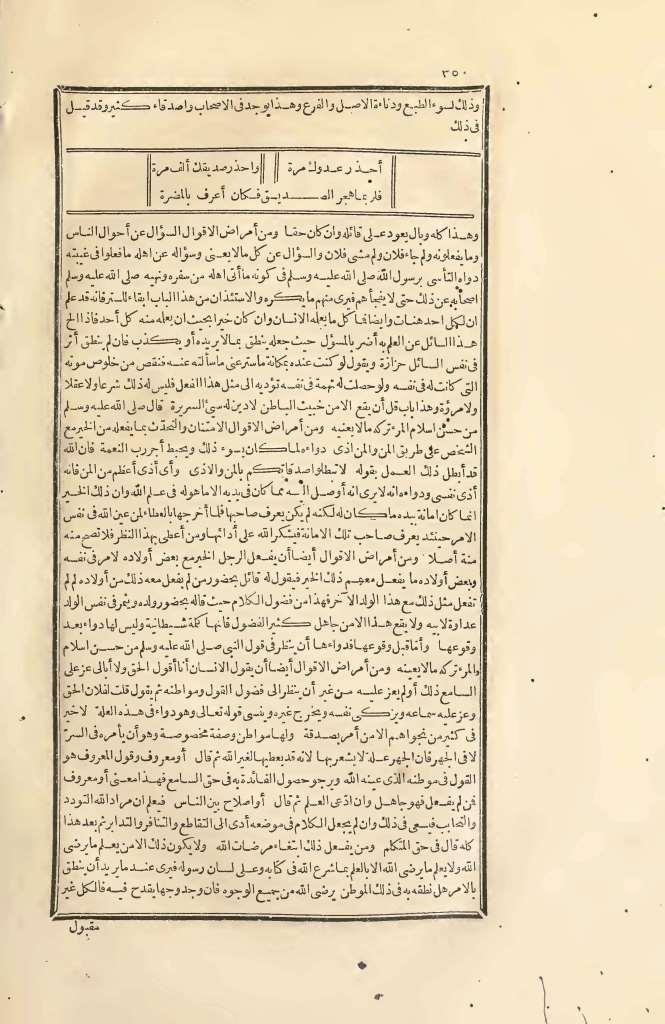 ٣٥٠
وذلك لسوء الطبع ودناءة الاصل والفرع وهذا يوجد فى الاصحاب واصدقاء كثير وقد قيل
فى ذلك
أحذر عدوك مرة واحذر صديقك ألف مرة
فلربما هجر الصديق فكان أعرف بالمضرة
وهذا كله وبال يعود على قائله وان كان حقا ومن أمراض الاقوال السؤال عن أحوال الناس
وما يفعلونه ولم جاء فلان ولم مشى فلان والسؤال عن كل ما لا يعنى وسؤاله عن اهله ما فعلوا فى غيبته
دواه التأسى برسول الله صلى الله عليه وسلم فى كونه ما أتى اهله من سفره ونهيه صلى الله عليه وسلم
اصحابه عن ذلك حتى لا يفجأهم فيرى منهم ما يكره والاستئذان من هذا الباب ابقاء للستر فانه قد علم
ان لكل احد هنات وايضا فما كل ما يعمله الانسان وان كان خيرا يحب ان يعلمه منه كل أحد فاذا ألح
هذا السائل عن العلم به أضر بالمسؤل حيث جعله ينطق بما لا يريده أو يكذب فان لم ينطق أثر
فى نفس السائل حزازة ويقول لو كنت عنده بمكانة ما ستر عنى ما سألته عنه فنقص من خلوص مودته
التى كانت له فى نفسه ولو حصلت له تهمة فى نفسه تؤديه الى مثل هذا الفعل فليس له ذلك شرعا ولا عقلا
ولا مروءة وهذا باب قل أن يقع الا من خبيث الباطن لا دين له سيئ السريرة قال صلى الله عليه وسلم
من حسن اسلام المرء تركه ما لا يعنيه ومن أمراض الاقوال الامتنان والتحدث بما يفعله من الخير مع
الشخص على طريق المن والمن اذى دواءه لما كان يسوء ذلك ويحبط أجر رب النعمة فان الله
قد أبطل ذلك العمل بقوله لا تبطلوا صدقاتكم بالمن والاذى وأى أذى أعظم من المن فانه
أذى نفسى ودواءه انه لا يرى انه أوصل اليه مما كان فى يديه الا ما هو له فى علم الله وان ذلك الخير
انما كان امانة بيده ما كان له لكنه لم يكن يعرف صاحبها فلما أخرجها بالعطاء لمن عين الله فى نفس
الامر حينئذ يعرف صاحب تلك الامانة فيشكر الله على أدائها ومن أعطى بهذا النظر فلا تصح منه
منة أصلا ومن أمراض الاقوال أيضا أن يفعل الرجل الخير مع بعض أولاده لامر فى نفسه
وبعض أولاده ما يفعل معهم ذلك الخير فيقول له قائل بحضور من لم يفعل معه ذلك من أولاده لم لم
تفعل مثل ذلك مع هذا الولد الآخر فهذا من فضول الكلام حيث قاله بحضور ولده ويثمر فى نفس الولد
عداوة لابيه ولا يقع هذا الا من جاهل كثير الفضول فانها كلمة شيطانية وليس لها دواء بعد
وقوعها وأما قبل وقوعها فدواءها أن ينظر فى قول النبى صلى الله عليه وسلم من حسن اسلام
والمرء تركه ما لا يعنيه ومن أمراض الاقوال أيضا أن يقول الانسان أنا أقول الحق ولا أبالى عز على
السامع ذلك أو لم يعز عليه من غير أن ينظر الى فضول القول ومواطنه ثم يقول قلت لفلان الحق
وعز عليه سماعه ويزكى نفسه ويجرح غيره وينسى قوله تعالى وهو دواء فى هذه العلة لا خير
فى كثير من نجواهم الا من أمر بصدقة ولها مواطن وصفة مخصوصة وهو أن يأمره فى السر
لا فى الجهر فان الجهر علة لا يشعر بها لانه قد يعطيها لغير الله ثم قال أو معروف وقول المعروف هو
القول فى موطنه الذى عينه الله ويرجو حصول الفائدة به فى حق السامع فهذا معنى أو معروف
فمن لم يفعل فهو جاهل وان ادعى العلم ثم قال أو اصلاح بين الناس فيعلم ان مراد الله التودد
والتحابب فيسعى فى ذلك وان لم يجعل الكلام فى موضعه أدى الى التقاطع والتنافر والتدابر ثم بعد هذا
كله قال فى حق المتكلم ومن يفعل ذلك ابتغاء مرضات الله ولا يكون ذلك الا ممن يعلم ما يرضى
الله ولا يعلم ما يرضى الله الا بالعلم بما شرع الله فى كتابه وعلى لسان رسوله فيرى عند ما يريد أن ينطق
بالامر هل نطقه به فى ذلك الموطن يرضى الله من جميع الوجوه فان وجد وجها يقدح فيه فالكل غير
مقبول